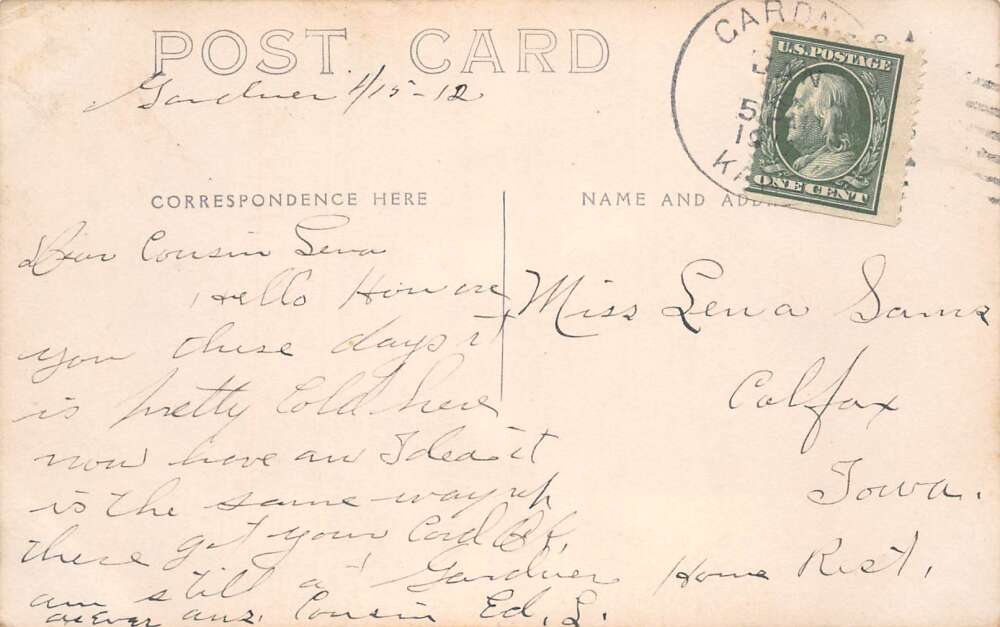 POST CARD
Gardner 1/15-12
GARDNER
JAN
5
19
KA
U.S. POSTAGE
ONE CENT
CORRESPONDENCE HERE
NAME AND ADDRE
Dear Cousin Lena
Hello How are
you these days it
is pretty Cold here
now have an Idea it
is the same way up
there got your Card Ok,
am still at Gardner Home Rest,
as ever ans. Cousin Ed, L.
Miss Lena Sams
Colfax
Iowa.